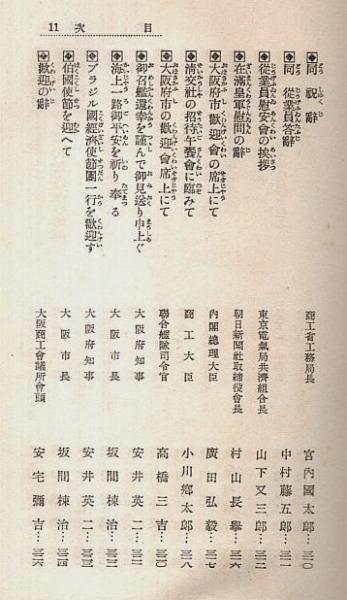 目次 11
◆同 祝辭 商工省工務局長 宮內國太郎…三二〇
◆同 從業員答辭 中村藤五郎…三二一
◆從業員慰安會の挨拶 東京電氣局共濟組合長 山下又三郎…三二二
◆在滿皇軍慰問の辭 朝日新聞社取締役會長 村山長擧…三二六
◆大阪府市歡迎會の席上にて 內閣總理大臣 廣田弘毅…三二七
◆淸交社の招待午餐會に臨みて 商工大臣 小川鄕太郎…三二八
◆大阪府市の歡迎會席上にて 聯合艦隊司令官 高橋三吉…三三〇
◆御召艦還幸を謹んで御見送り申上ぐ 大阪府知事 安井英二…三三一
◆海上一路御平安を祈り奉る 大阪市長 坂間棟治…三三二
◆ブラジル國經濟使節團一行を歡迎す 大阪府知事 安井英二…三三三
◆伯國使節を迎へて 大阪市長 坂間棟治…三三四
◆歡迎の辭 大阪商工會議所會頭 安宅彌吉…三三六